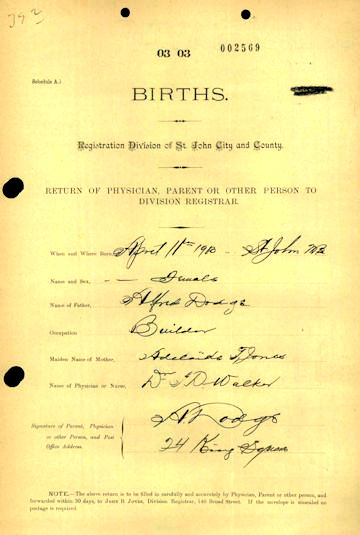 03 03 002569
Schedule A.)
BIRTHS.
Registration Division of St. John City and County.
RETURN OF PHYSICIAN, PARENT OR OTHER PERSON TO
DIVISION REGISTRAR.
When and Where Born, April 11th 1910 - St John NB
Name and Sex, — Female
Name of Father, Alfred Dodge
Occupation Builder
Maiden Name of Mother, Adelaide Jones
Name of Physician or Nurse, Dr Walker
Signature of Parent, Physician
or other Person, and Post
Office Address.
A Dodge
24 King Square
NOTE.—The above return is to be filled in carefully and accurately by Physician, Parent or other person, and
forwarded within 30 days, to John B. Jones, Division Registrar, 140 Broad Street. If the envelope is unsealed no
postage is required